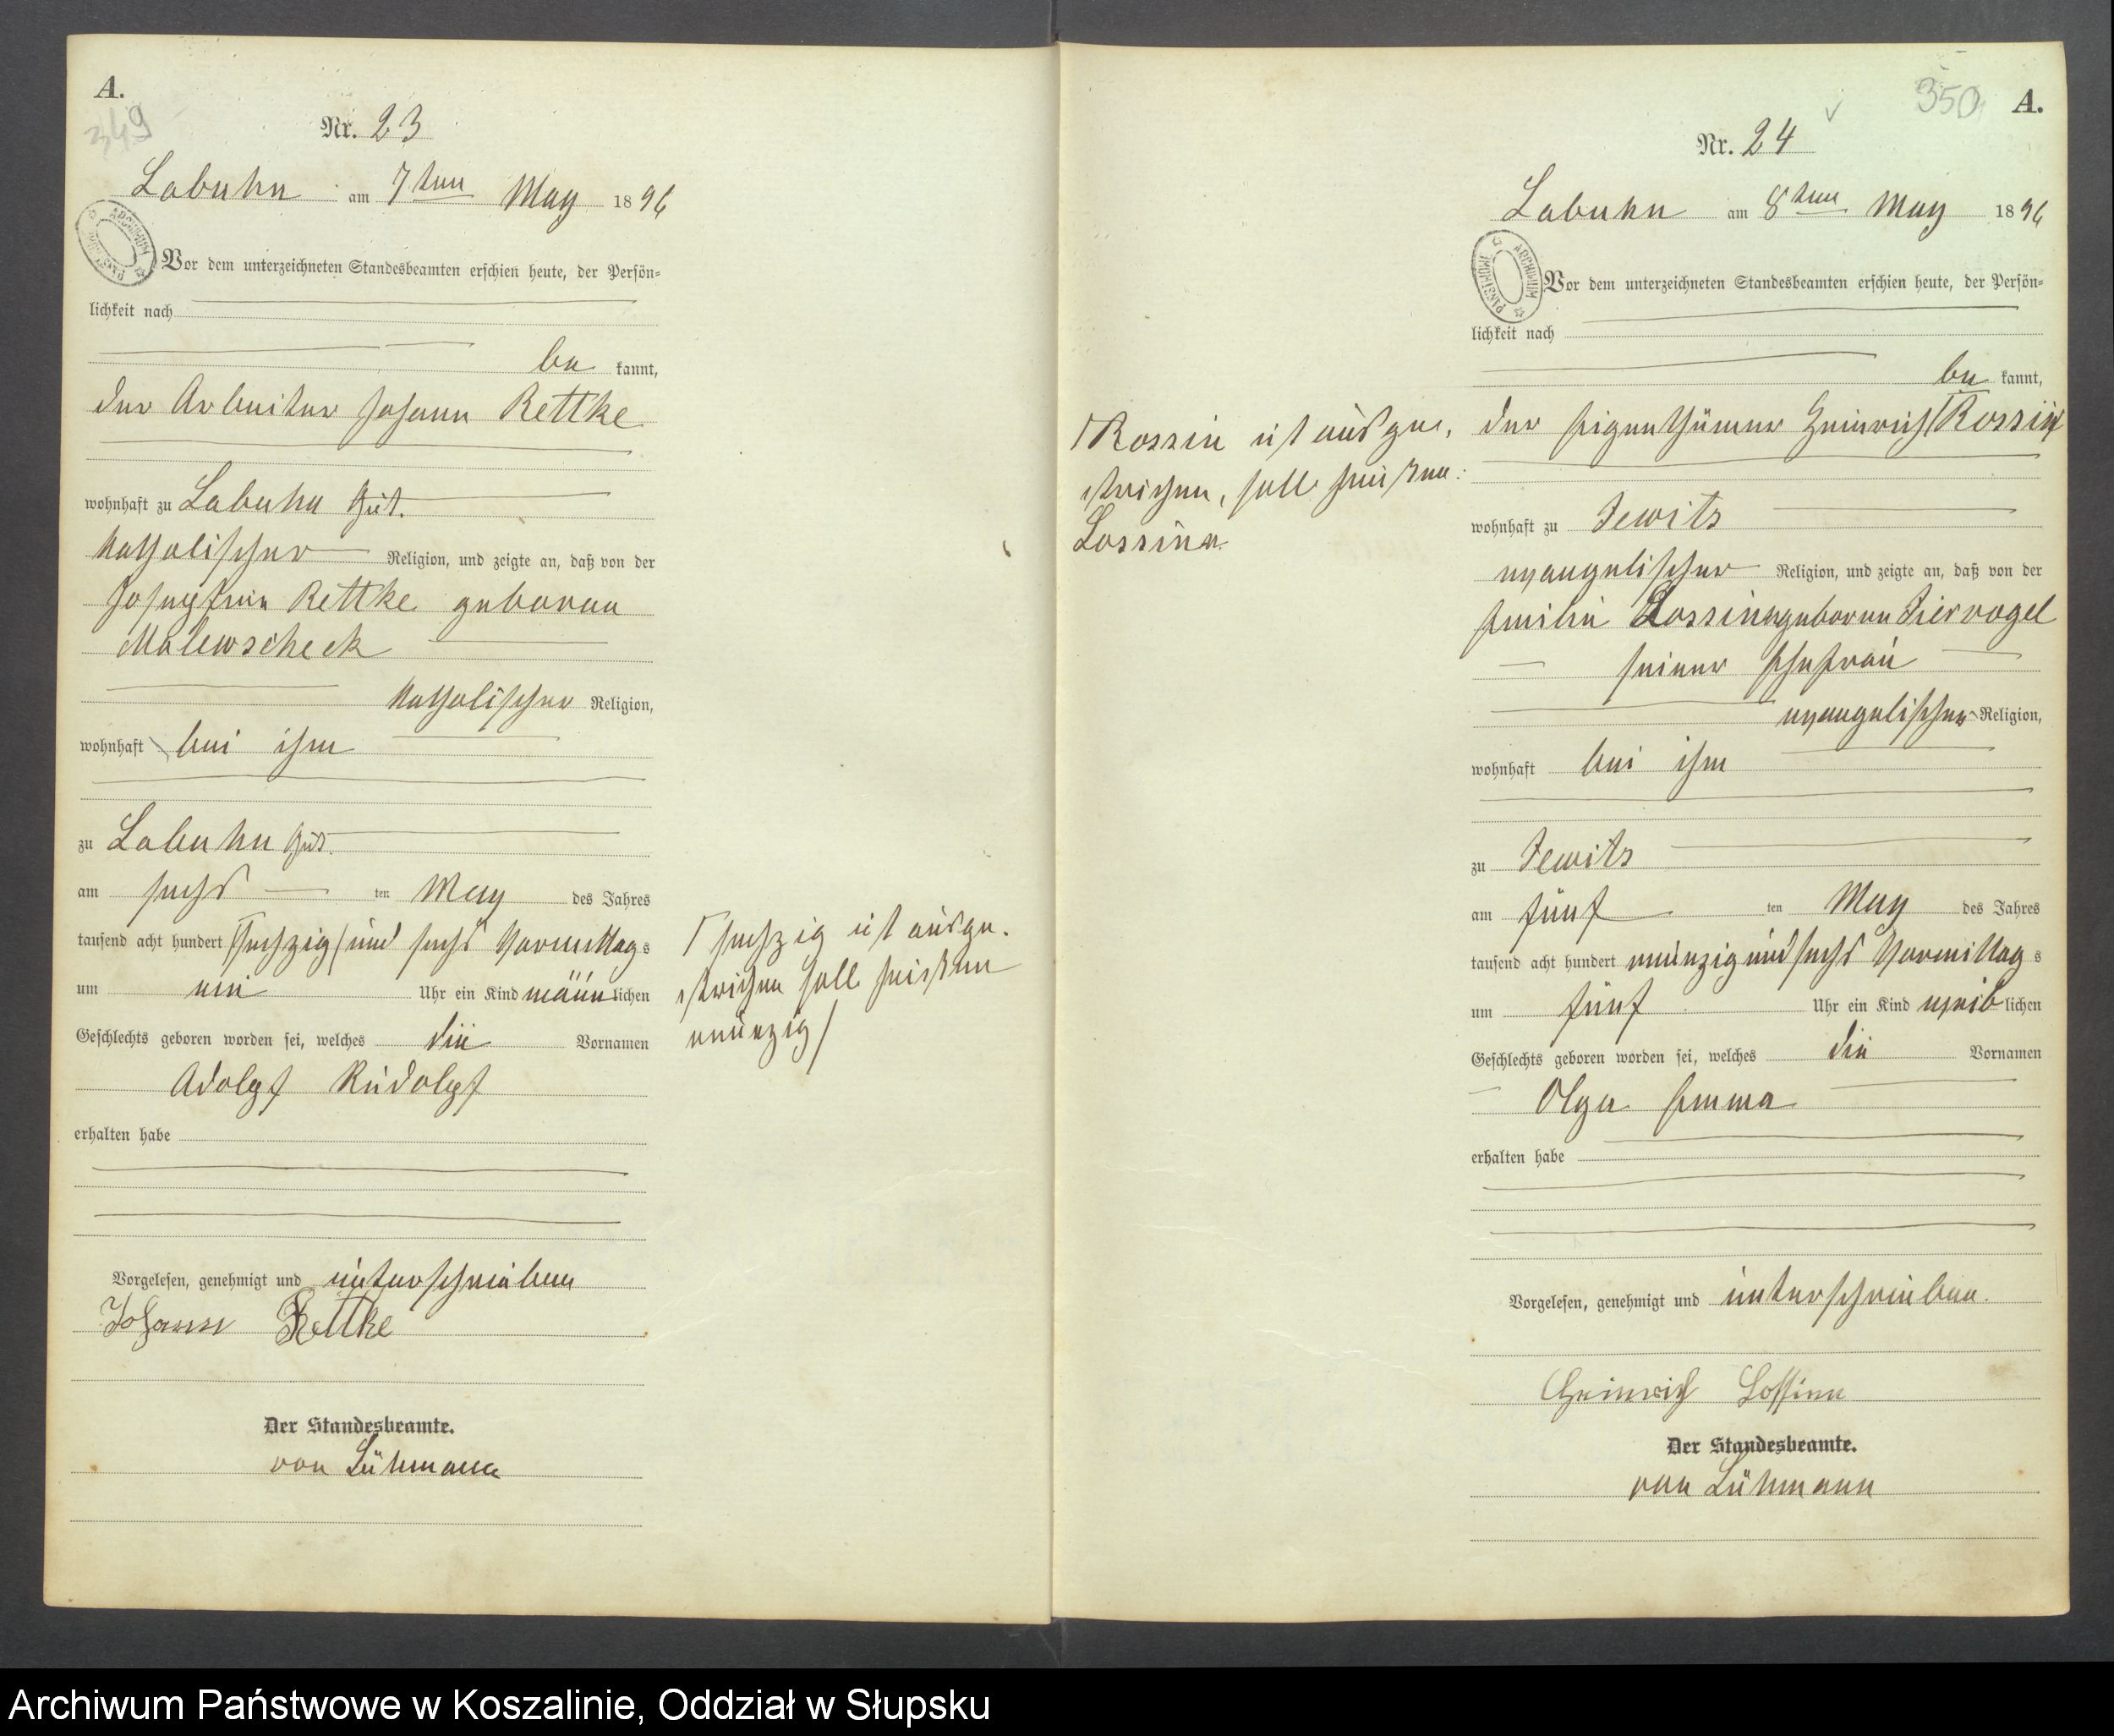 A.
349
Nr. 23
Labuhn am 7ten May 1896
Vor dem unterzeichneten Standesbeamten erschien heute, der Persön-
lichkeit nach
be kannt,
der Arbeiter Johann Rettke
wohnhaft zu Labuhn Gut.
katholischer Religion, und zeigte an, daß von der
Josephine Rettke geboren
Malewscheck
katholischer Religion,
wohnhaft bei ihm
zu Labuhn Gut.
am sechs ten May des Jahres
tausend acht hundert sechzig und sechs Vormittags
um ein Uhr ein Kind männlichen
Geschlechts geboren worden sei, welches die Vornamen
Adolph Rudolph
erhalten habe
Vorgelesen, genehmigt und unterschrieben
Johann Rettke
Der Standesbeamte.
von Lühmann
sechzig ist ausge-
strichen soll heissen
neunzig
350 A.
Nr. 24
Labuhn am 8ten May 1896
ARCHIWUM PAŃSTWOWE
Vor dem unterzeichneten Standesbeamten erschien heute, der Persön-
lichkeit nach
be kannt,
der Eigenthümer Heinrich Rossin
Rossin ist ausge-
strichen, soll heissen:
Lossinn.
wohnhaft zu Jewitz
evangelischer Religion, und zeigte an, daß von der
Emilie Lossinn geboren Ziervogel
seiner Ehefrau
evangelischer Religion,
wohnhaft bei ihm
zu Jewitz
am fünf ten May des Jahres
tausend acht hundert neunzig und sechs Vormittags
um fünf Uhr ein Kind weiblichen
Geschlechts geboren worden sei, welches die Vornamen
Olga Emma
erhalten habe
Vorgelesen, genehmigt und unterschrieben.
Heinrich Lossinn
Der Standesbeamte.
von Lühmann
Archiwum Państwowe w Koszalinie, Oddział w Słupsku